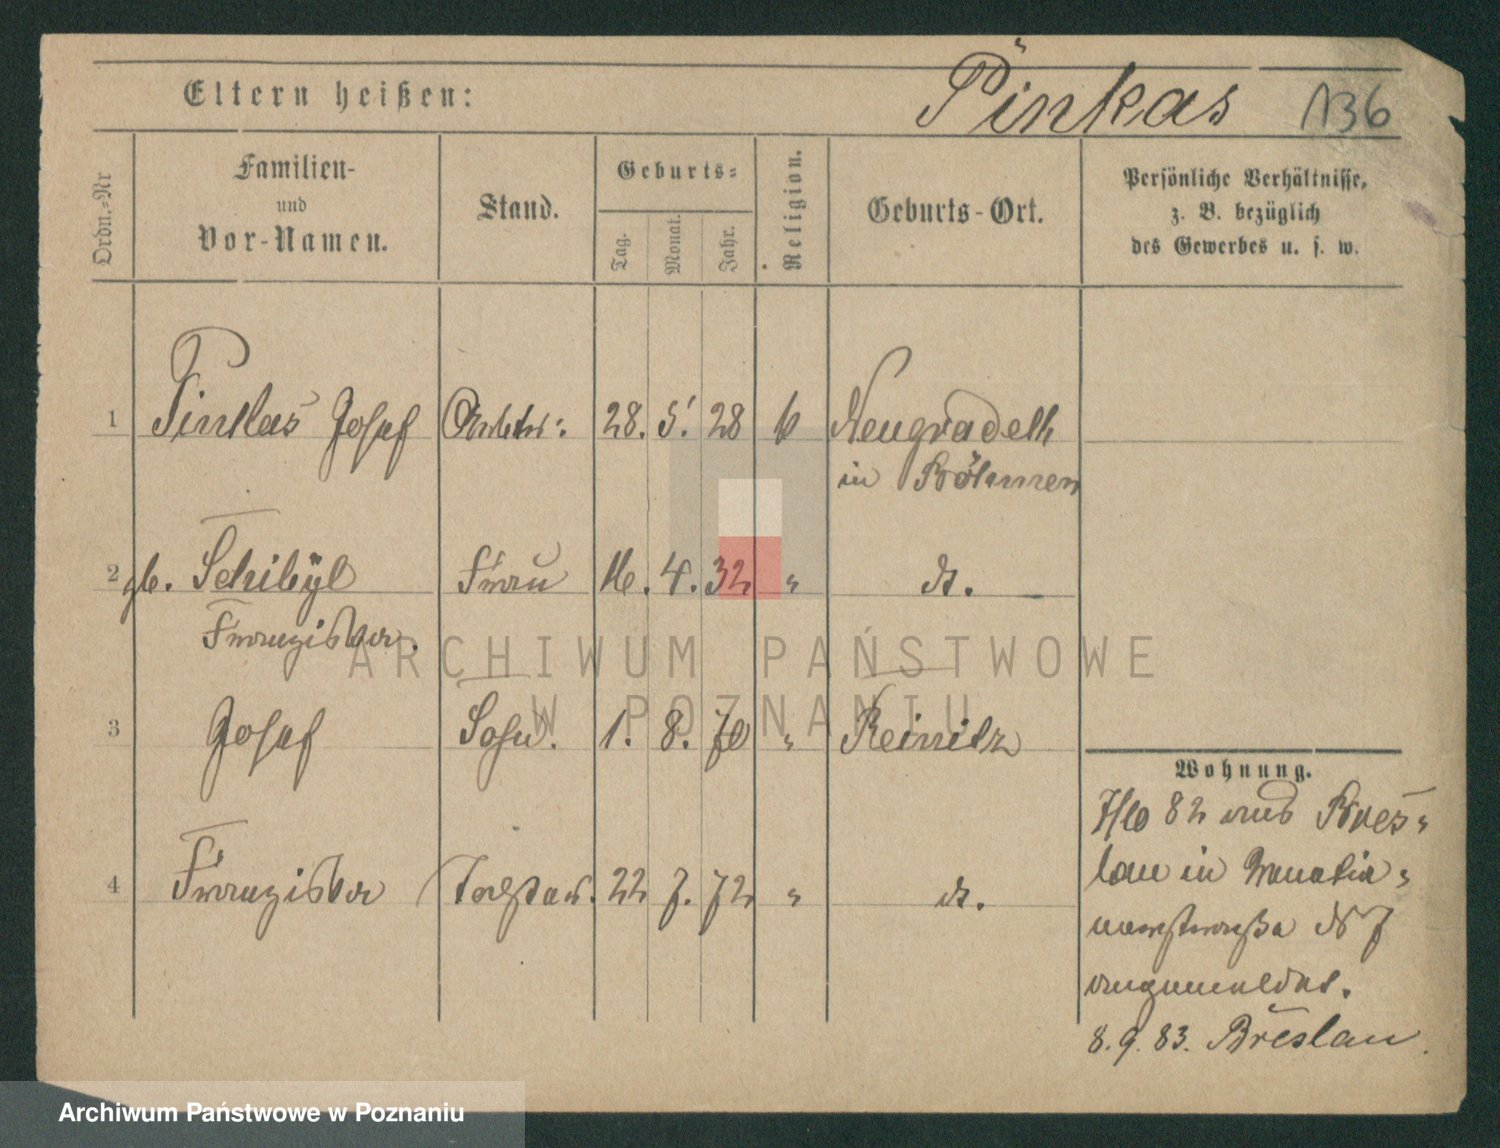 Eltern heißen: Pinkas 136
Ordn.-Nr
Familien-
und
Vor-Namen.
Stand.
Geburts-
Tag.
Monat.
Jahr.
Religion.
Geburts-Ort.
Persönliche Verhältnisse,
z. B. bezüglich
des Gewerbes u. s. w.
1 Pinkas Josef 28. 5. 28 Neugradek
in Böhmen
2 gb. Schibÿl Frau 16. 4. 32 " dt.
Franziska.
3 Josef Sohn. 1. 8. 70 " Reinitz
4 Franziska Tochter. 22 7. 72 " dt.
Wohnung.
82 aus Bres-
lau in
No 7
angemeldet.
8. 9. 83. Breslau.
ARCHIWUM PAŃSTWOWE
W POZNANIU
Archiwum Państwowe w Poznaniu